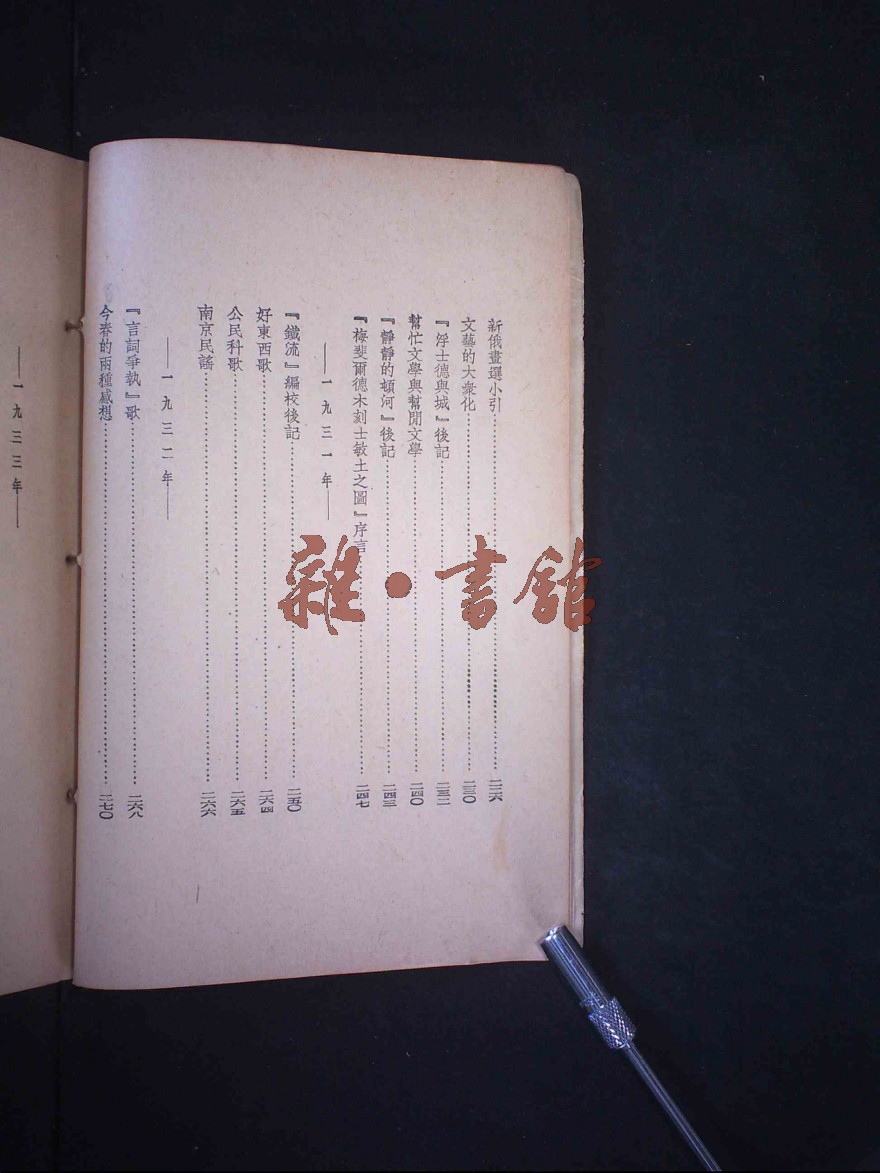 新俄畫選小引……二二六
文藝的大衆化……二三〇
『浮士德與城』後記……二三二
幫忙文學與幫閒文學……二四〇
『靜靜的頓河』後記……二四三
『梅斐爾德木刻士敏土之圖』序言……二四七
——一九三一年——
『鐵流』編校後記……二五〇
好東西歌……二六四
公民科歌……二六五
南京民謠……二六六
——一九三二年——
『言詞爭執』歌……二六八
今春的兩種感想……二七〇
——一九三三年——
雜·書館